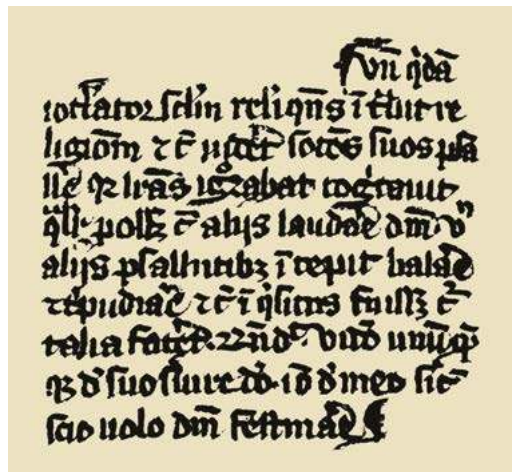 q̇dā
ioc̄lator sc̄lm reliqn̄s ī t̄uit re
ligiōm ⁊ c̄ uid̄et socōs suos psa
ll'e qꝛ lr̄as ig̊rabat cogitauit
posꝫ c̄ alijs laudar̄e dm̄
alijs psallntibꝫ īcepit balar̄e
t̄pudiar̄e ⁊ c̄ īq̇situs fuisꝫ c̄
talia fac̄et uidō unūq̄
qꝫ d' suo suire dō iō d' meo sic̄
scio uolo dm̄ festinar̄e